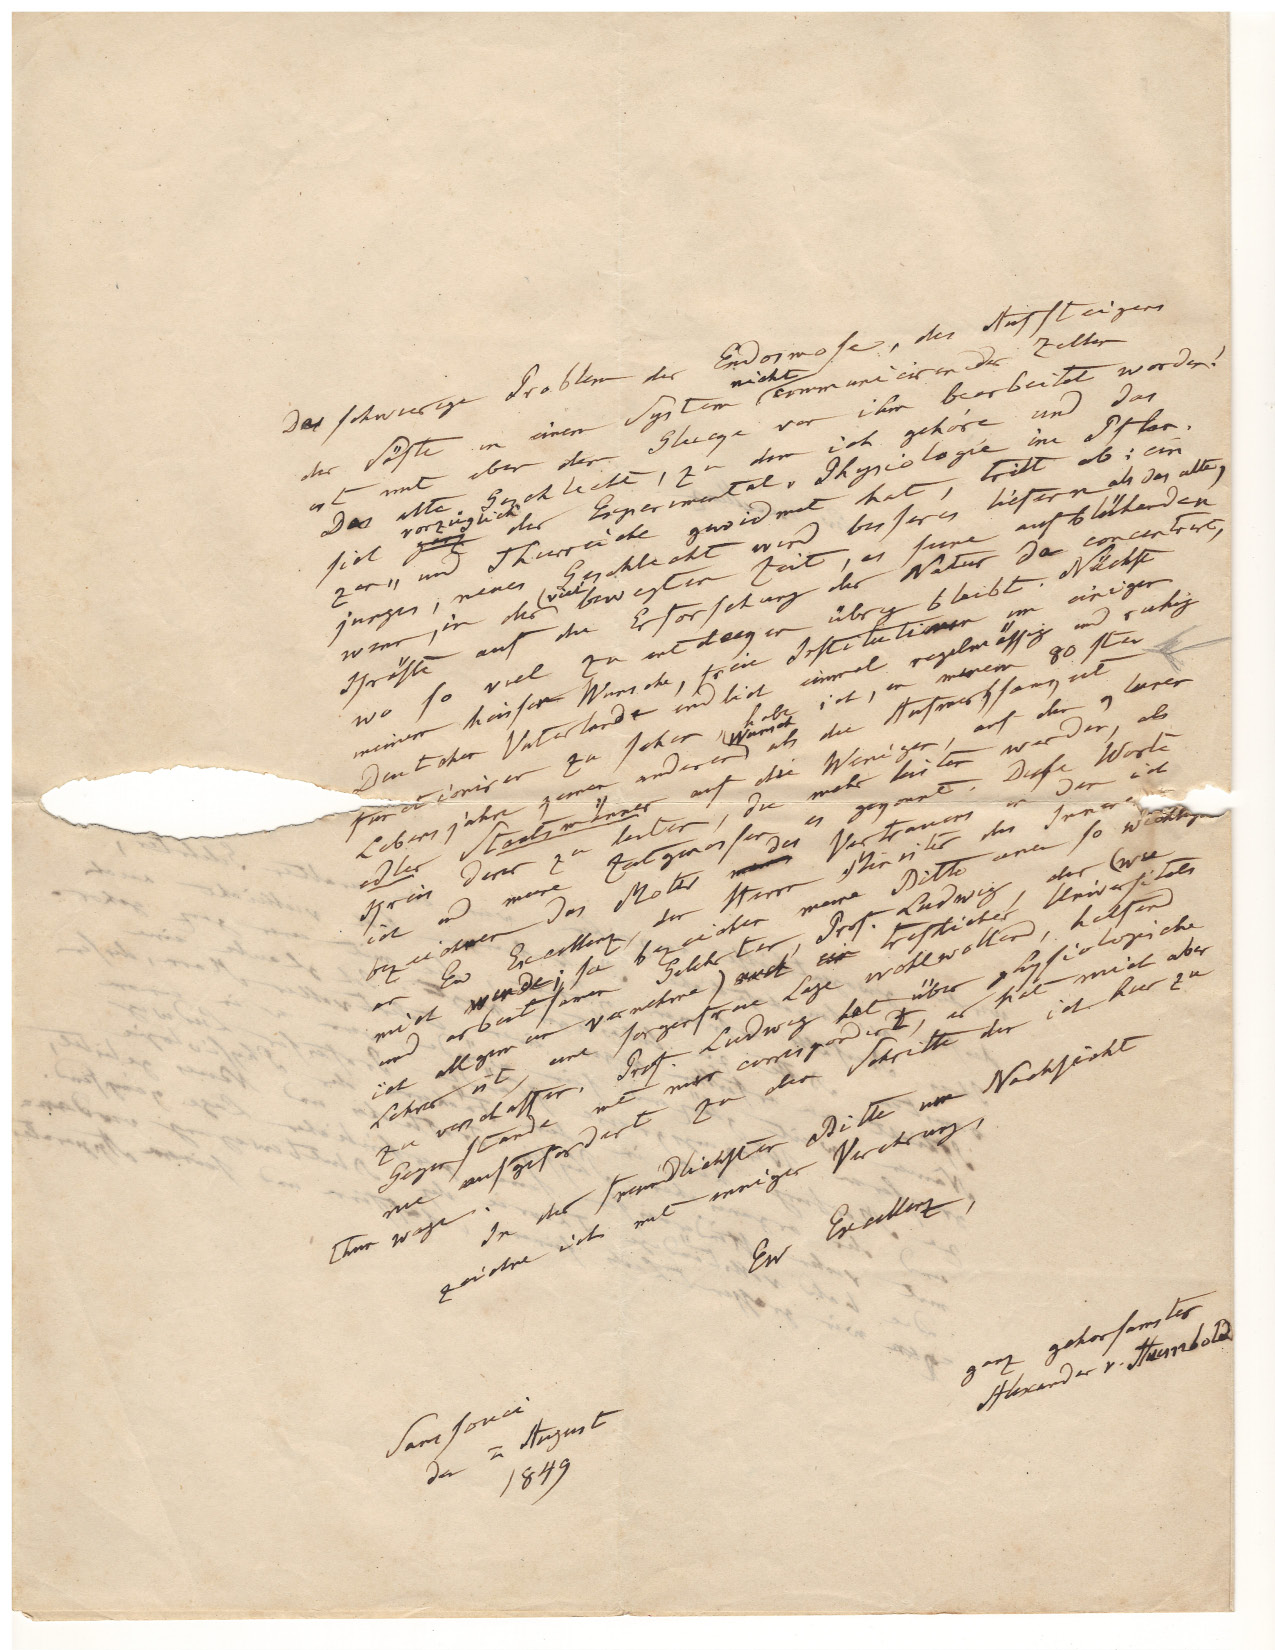 Das schwierige Problem der Endosmose, des Aufsteigens
der Säfte in einem System nicht communicirender Zellen
ist mit eben dem Glücke von ihm bearbeitet worden!
Das alte Geschlecht, zu dem ich gehöre und das
sich vorzüglich der Experimental-Physiologie im Pflan-
zen- und Thierreiche gewidmet hat, tritt ab: ein
junges, neues Geschlecht wird besseres liefern als das alte,
wenn, in der (viel) bewegten Zeit, es seine aufblühenden
Kräfte auf die Erforschung der Natur da concentrirt,
wo so viel zu entdecken übrig bleibt. Nächst
meinem heissen Wunsche, freie Institutionen im einigen
Deutschen Vaterlande endlich einmal regelmässig und ruhig
functioniren zu sehen, habe ich, in meinem 80sten
Lebensjahre keinen anderen Wunsch als die Aufmerksamkeit
edler Staatsmänner auf die Wenigen, auf den kleinen
Kreis derer zu leiten, die mehr leisten werden, als
ich und meine Zeitgenossen es gekonnt. Diese Worte
bezeichnen das Motiv des Vertrauens in dem ich
an Ew Excellenz, den Herrn Minister des Inneren
mich wende; sie bezeichnen meine Bitte einen so wichtigen
und arbeitsamen Gelehrten, Prof. Ludwig, der (wie
ich allgemein vernehme) auch ein trefflicher Universitäts
Lehrer ist, eine sorgenfreie Lage wohlwollend, helfend
zu verschaffen. Prof. Ludwig hat über physiologische
Gegenstände mit mir correspondirt, er hat mich aber
nie aufgefordert zu dem Schritte den ich hier zu
thun wage.
In der freundlichsten Bitte um Nachsicht
zeichne ich mit inniger Verehrung,
Ew Excellenz,
ganz gehorsamster
Alexander v. Humboldt
Sans souci
den August
1849